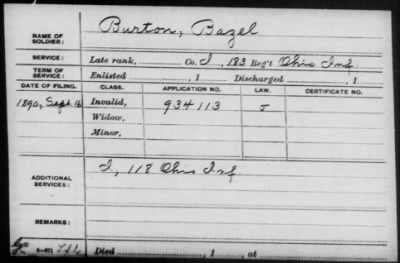 NAME OF SOLDIER: Burton, Bazel
SERVICE: Late rank, Co. I, 183 Reg't Ohio Inf.
TERM OF SERVICE: Enlisted , 1 Discharged , 1
DATE OF FILING. CLASS. APPLICATION NO. LAW. CERTIFICATE NO.
1890, Sept. 16 Invalid, 934113 J
Widow,
Minor,
ADDITIONAL SERVICES: I, 118 Ohio Inf
REMARKS:
Died , 1 , at